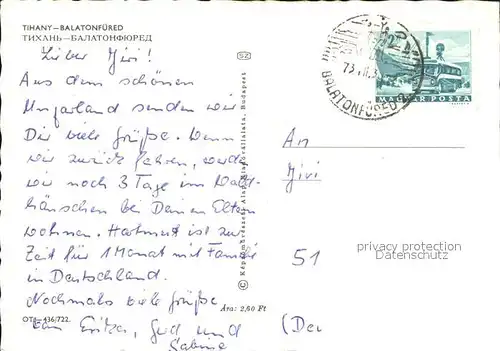 TIHANY—BALATONFÜRED
ТИХАНЬ—БАЛАТОНФЮРЕД
Lieber Jivi!
Aus dem schönen
Ungarland senden wir
Dir viele Grüße. Wenn
wir zurück fahren, werden
wir noch 3 Tage im
häuschen bei Deinen Eltern
wohnen. Hartmut ist zur
Zeit für 1 Monat mit Familie
in Deutschland.
Nochmals viele Grüße
und
Sabine
OTé-436/722.
Ára: 2,60 Ft
© Képzőművészeti Alap Kiadóvállalata, Budapest
SZ
BALATONFÜRED
MAGYAR POSTA
An
Jivi
51
privacy protection
Datenschutz